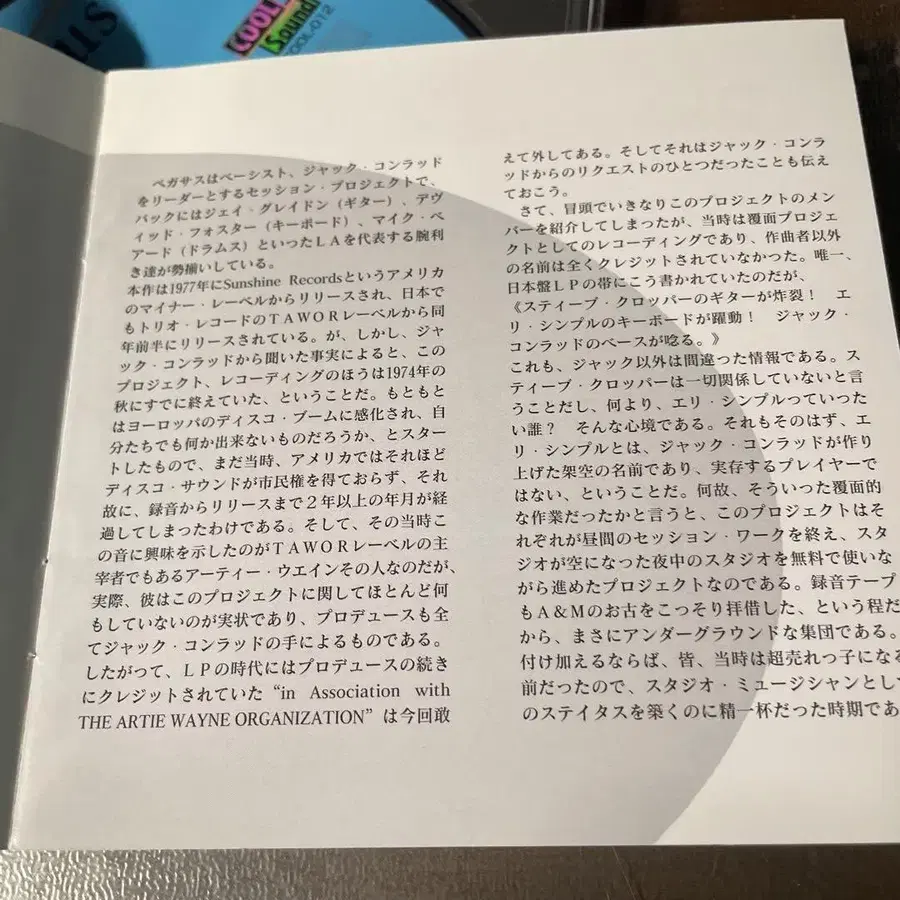 COOL
Sound
COOL-012
ペガサスはベーシスト、ジャック・コンラッド
をリーダーとするセッション・プロジェクトで、
バックにはジェイ・グレイドン（ギター）、デヴ
ィッド・フォスター（キーボード）、マイク・ベ
アード（ドラムス）といったＬＡを代表する腕利
き達が勢揃いしている。
本作は1977年にSunshine Recordsというアメリカ
のマイナー・レーベルからリリースされ、日本で
もトリオ・レコードのＴＡＷＯＲレーベルから同
年前半にリリースされている。が、しかし、ジャ
ック・コンラッドから聞いた事実によると、この
プロジェクト、レコーディングのほうは1974年の
秋にすでに終えていた、ということだ。もともと
はヨーロッパのディスコ・ブームに感化され、自
分たちでも何か出来ないものだろうか、とスター
トしたもので、まだ当時、アメリカではそれほど
ディスコ・サウンドが市民権を得ておらず、それ
故に、録音からリリースまで２年以上の年月が経
過してしまったわけである。そして、その当時こ
の音に興味を示したのがＴＡＷＯＲレーベルの主
宰者でもあるアーティー・ウエインその人なのだが、
実際、彼はこのプロジェクトに関してほとんど何
もしていないのが実状であり、プロデュースも全
てジャック・コンラッドの手によるものである。
したがって、ＬＰの時代にはプロデュースの続き
にクレジットされていた “in Association with
THE ARTIE WAYNE ORGANIZATION” は今回敢
えて外してある。そしてそれはジャック・コンラ
ッドからのリクエストのひとつだったことも伝え
ておこう。
さて、冒頭でいきなりこのプロジェクトのメン
バーを紹介してしまったが、当時は覆面プロジェ
クトとしてのレコーディングであり、作曲者以外
の名前は全くクレジットされていなかった。唯一、
日本盤ＬＰの帯にこう書かれていたのだが、
《スティーブ・クロッパーのギターが炸裂！　エ
リ・シンプルのキーボードが躍動！　ジャック・
コンラッドのベースが唸る。》
これも、ジャック以外は間違った情報である。ス
ティーブ・クロッパーは一切関係していないと言
うことだし、何より、エリ・シンプルっていった
い誰？　そんな心境である。それもそのはず、エ
リ・シンプルとは、ジャック・コンラッドが作り
上げた架空の名前であり、実存するプレイヤーで
はない、ということだ。何故、そういった覆面的
な作業だったかと言うと、このプロジェクトはそ
れぞれが昼間のセッション・ワークを終え、スタ
ジオが空になった夜中のスタジオを無料で使いな
がら進めたプロジェクトなのである。録音テープ
もＡ＆Ｍのお古をこっそり拝借した、という程だ
から、まさにアンダーグラウンドな集団である。
付け加えるならば、皆、当時は超売れっ子になる
前だったので、スタジオ・ミュージシャンとして
のステイタスを築くのに精一杯だった時期であ